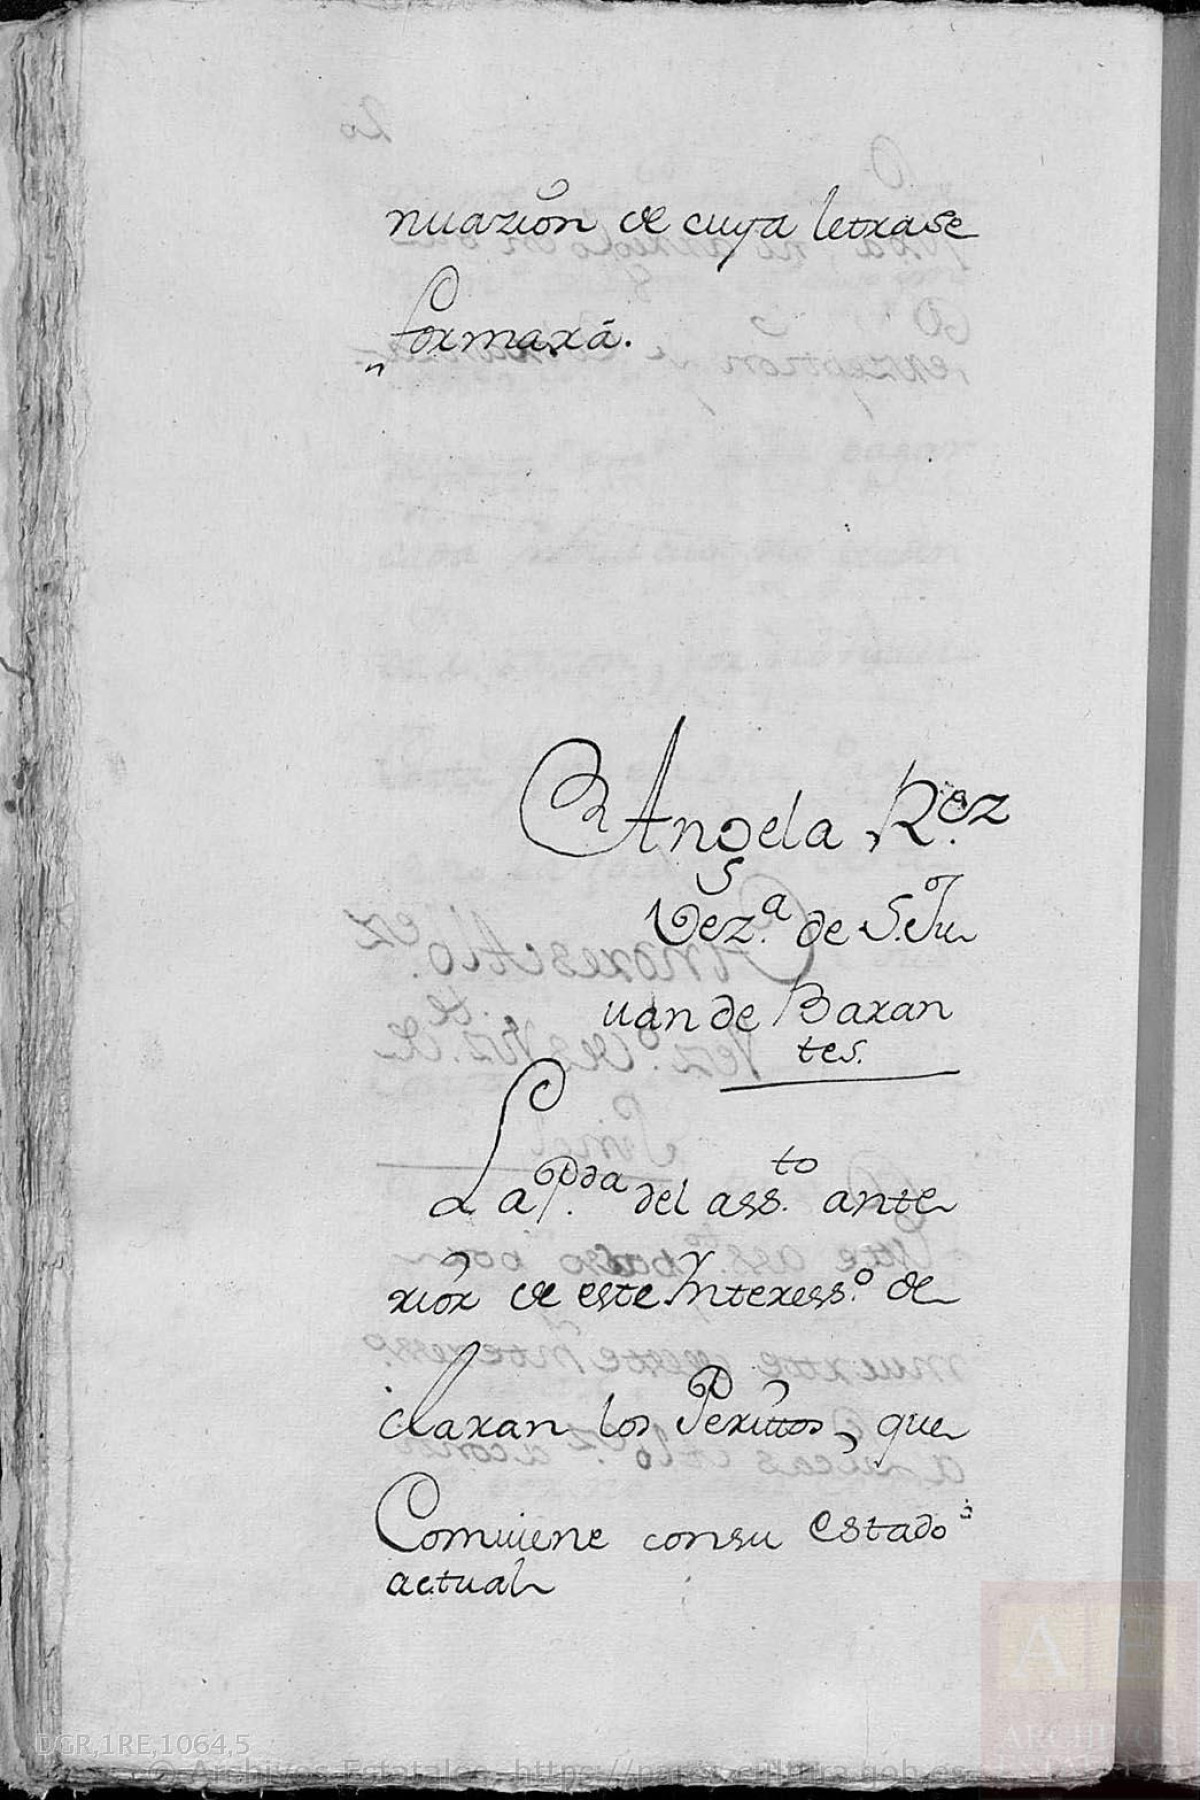 nuazion de cuya letra se
formará.
Angela R.ez
Vez.ª de S. Ju
uan de Baran
tes.
La p.da del ass.to ante
rior de este Interess.º de
claran los Perittos, que
Comuiene con su estado
actual
DGR,1RE,1064,5
© Archivos Estatales, https://pares.cultura.gob.es
A E
ARCHIVOS
ESTATALES